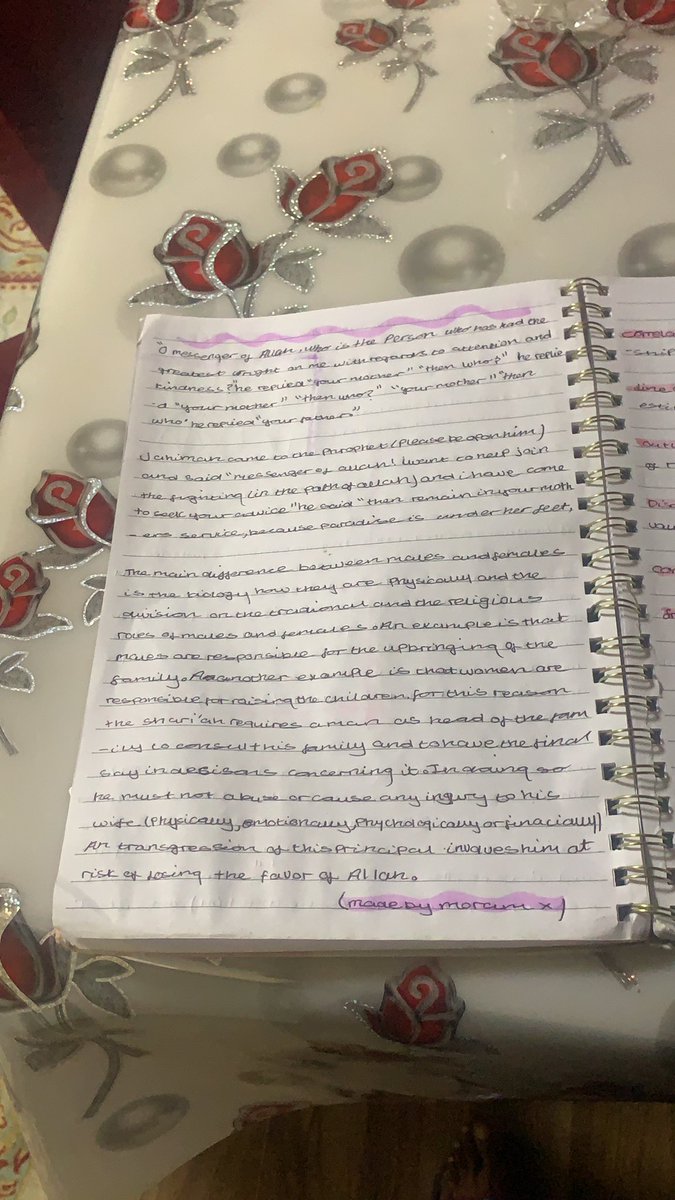 "O messenger of Allah, who is the Person who has had the
greatest wright on me with regards to attention and
kindness?" he replied "your mother" "then who?" he replie
-d "your mother" "then who?" "your mother" "then
who" he replied "your father"
Jahimah came to the Prophet (Please be apon him)
and said "messenger of allah! I want to help join
the fighting (in the path of allah) and i have come
to seek your advice" he said "then remain in your moth
-ers service, because paradise is under her feet,
The main difference between males and females
is the biology how they are Physically and the
division on the tradional and the religious
roles of males and females. An example is that
males are responsible for the upbringing of the
family. Another example is that women are
responsible for raising the children. for this reason
the shari'ah requires a man as head of the fam
-ily to consult his family and to have the final
say in desisons concerning it. In doing so
he must not abuse or cause any ingury to his
wife (Physically, emotionally, Phychologically or finacially)
An transgression of this Principal involves him at
risk of losing the favor of Allah.
(made by moram x)
comela